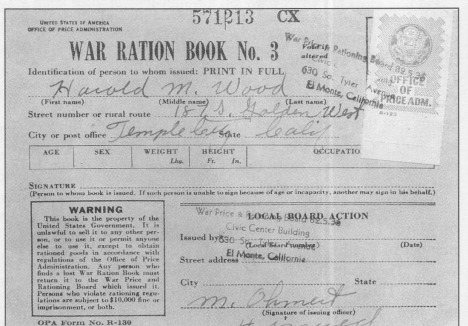 571213 CX
UNITED STATES OF AMERICA
OFFICE OF PRICE ADMINISTRATION
WAR RATION BOOK No. 3
Void if altered
War Price & Rationing Board
630 So. Tyler Avenue
El Monte, California
OFFICE OF PRICE ADM.
R-123
Identification of person to whom issued: PRINT IN FULL
Harold M. Wood
(First name) (Middle name) (Last name)
Street number or rural route 187 S. Golden West
City or post office Temple City State Calif
AGE SEX WEIGHT Lbs. HEIGHT Ft. In. OCCUPATION
SIGNATURE
(Person to whom book is issued. If such person is unable to sign because of age or incapacity, another may sign in his behalf.)
WARNING
This book is the property of the
United States Government. It is
unlawful to sell it to any other per-
son, or to use it or permit anyone
else to use it, except to obtain
rationed goods in accordance with
regulations of the Office of Price
Administration. Any person who
finds a lost War Ration Book must
return it to the War Price and
Rationing Board which issued it.
Persons who violate rationing regu-
lations are subject to $10,000 fine or
imprisonment, or both.
OPA Form No. R-130
LOCAL BOARD ACTION
War Price &
Civic Center Building
Issued by
630 So.
(Local board number) (Date)
El Monte, California
Street address
City State
(Signature of issuing officer)